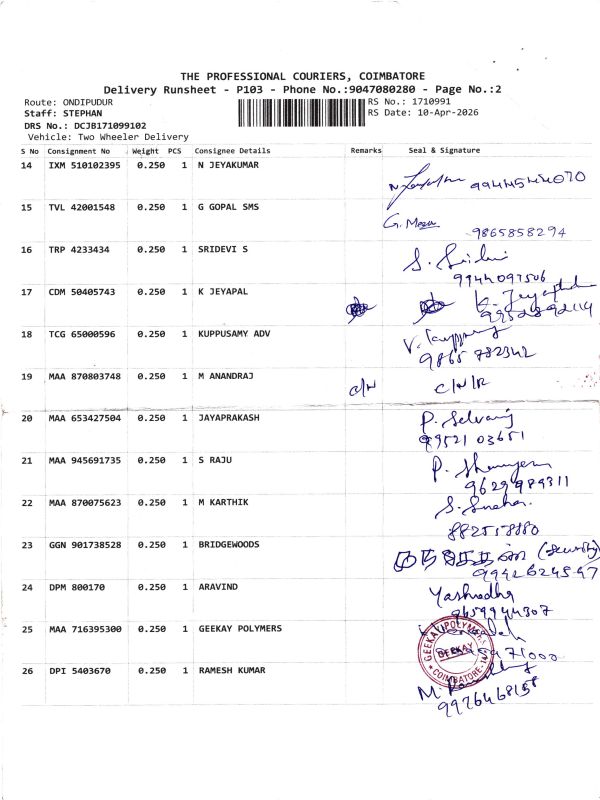 THE PROFESSIONAL COURIERS, COIMBATORE
Delivery Runsheet - P103 - Phone No.:9047080280 - Page No.:2
Route: ONDIPUDUR RS No.: 1710991
Staff: STEPHAN RS Date: 10-Apr-2026
DRS No.: DCJB171099102
Vehicle: Two Wheeler Delivery
S No Consignment No Weight PCS Consignee Details Remarks Seal & Signature
14 IXM 510102395 0.250 1 N JEYAKUMAR
15 TVL 42001548 0.250 1 G GOPAL SMS
G.
9865858294
16 TRP 4233434 0.250 1 SRIDEVI S
S.
9944097506
17 CDM 50405743 0.250 1 K JEYAPAL
K.
18 TCG 65000596 0.250 1 KUPPUSAMY ADV
V.
9865 782342
19 MAA 870803748 0.250 1 M ANANDRAJ C/N C/N/R
20 MAA 653427504 0.250 1 JAYAPRAKASH P. Selvaraj
99521 03651
21 MAA 945691735 0.250 1 S RAJU P.
9629989311
22 MAA 870075623 0.250 1 M KARTHIK S.
23 GGN 901738528 0.250 1 BRIDGEWOODS (Security)
24 DPM 800170 0.250 1 ARAVIND Yashodha
9659944307
25 MAA 716395300 0.250 1 GEEKAY POLYMERS
GEEKAY POLYMERS
GEEKAY
COIMBATORE
26 DPI 5403670 0.250 1 RAMESH KUMAR M.
9976468158